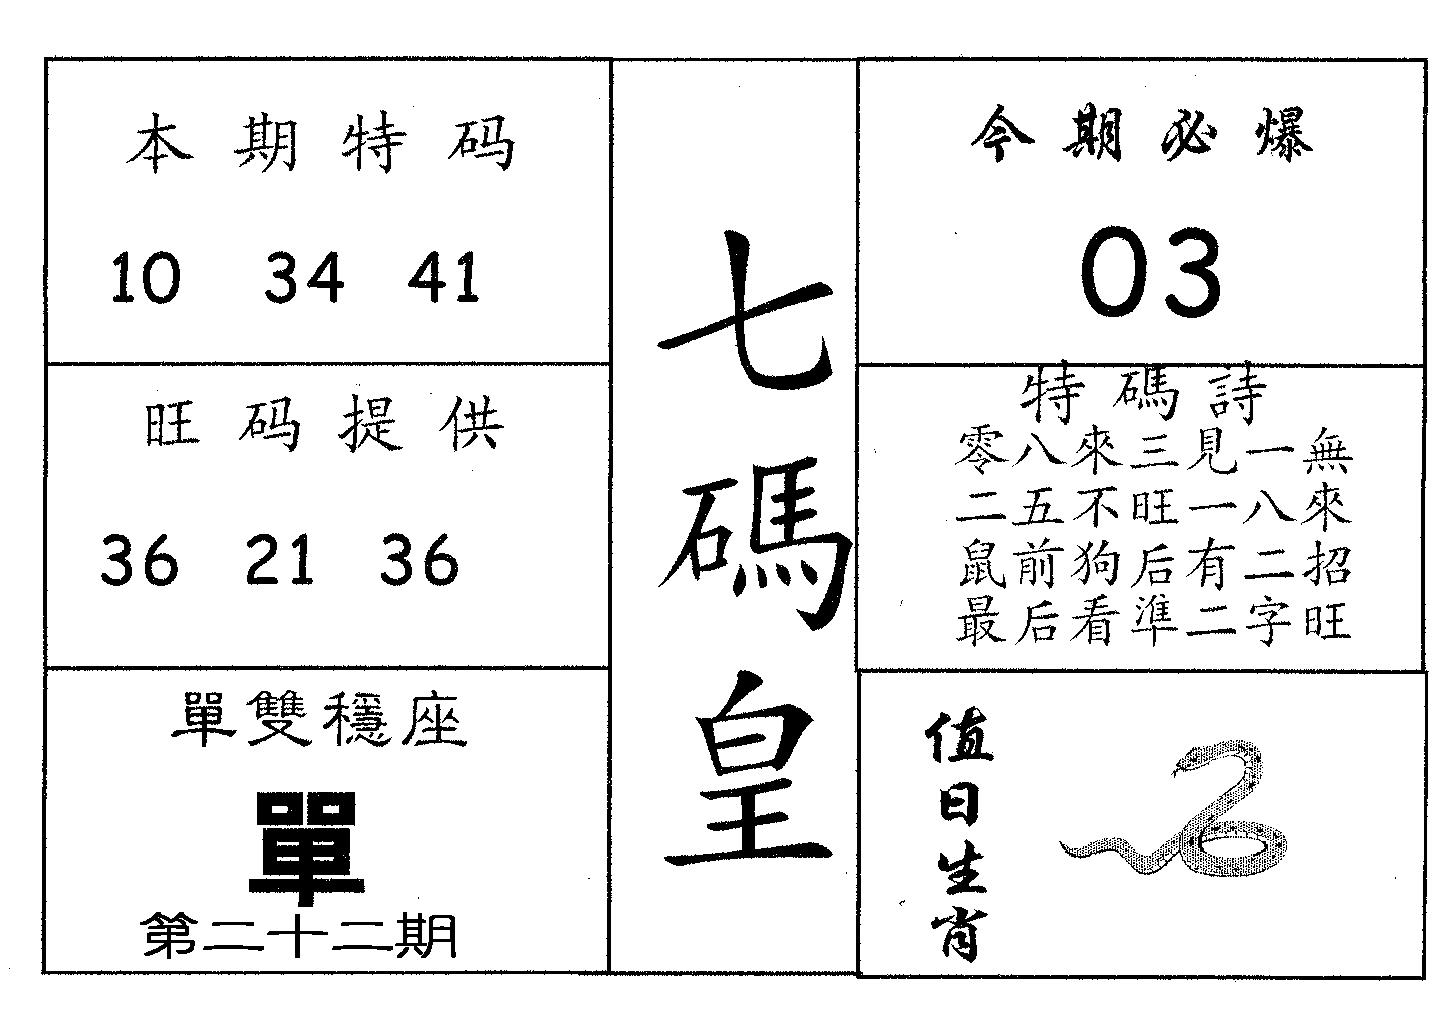 本期特码
10 34 41
旺码提供
36 21 36
單雙穩座
單
第二十二期
七碼皇
今期必爆
03
特碼詩
零八來三見一無
二五不旺一八來
鼠前狗后有二招
最后看準二字旺
值日生肖